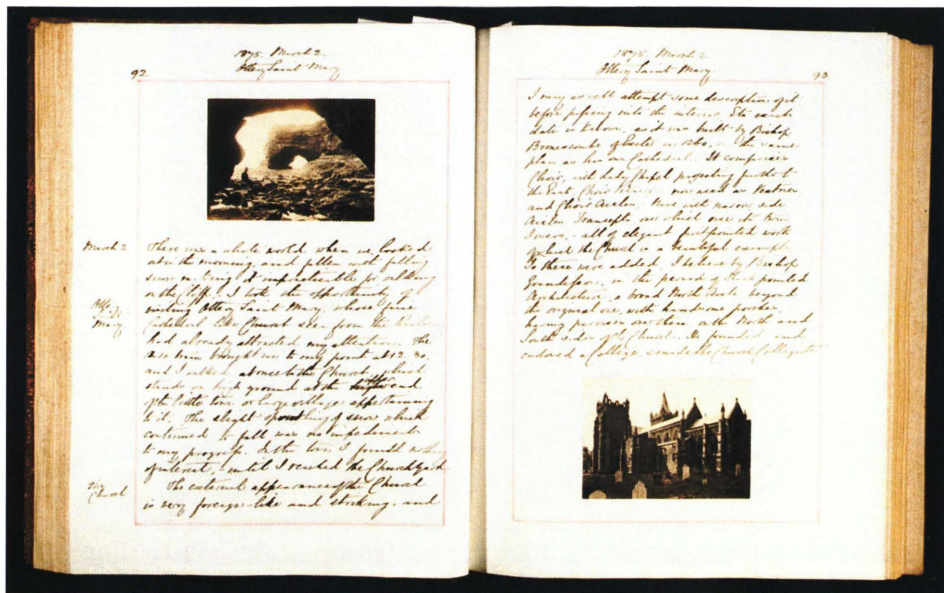 1875. March 2.
Ottery Saint Mary.
92
March 2
There was a white world when we looked
out in the morning and pellets with falling
snow making it impracticable for walking
on the Cliffs. I took the opportunity of
visiting Ottery Saint Mary, whose fine
Cathedral like Church seen from the
had already attracted my attention. The
train brought me to my point at 12.30,
and I walked at once to the Church, which
stands on high ground at the end
of the little town or large village appertaining
to it. The slight of snow which
continued to fall was no impediment
to my progress. In the town I found nothing
of interest, until I reached the Churchyard
Ott. St.
Mary.
The
Church
The external appearance of the Church
is very foreign-like and striking, and
1875. March 2
Ottery Saint Mary.
93
I may as well attempt some description of it
before passing into the interior. Its exact
date is known, as it was built by Bishop
Bronescombe of Exeter in 1260, on the same
plan as his own Cathedral. It comprises
Choir, with Lady Chapel projecting further to
the East, Choir now used as Vestries
and Choir Aisles, Nave with narrow side
Aisles Transepts over which rise its twin
Towers, all of elegant first pointed work
of which the Church is a beautiful example
To these were added, I believe by Bishop
Grandisson, in the period of third pointed
Architecture, a broad North Aisle beyond
the original one, with handsome porches,
having parvises over them, on the North and
South sides of the Church. He founded and
endowed a College, made the Church Collegiate